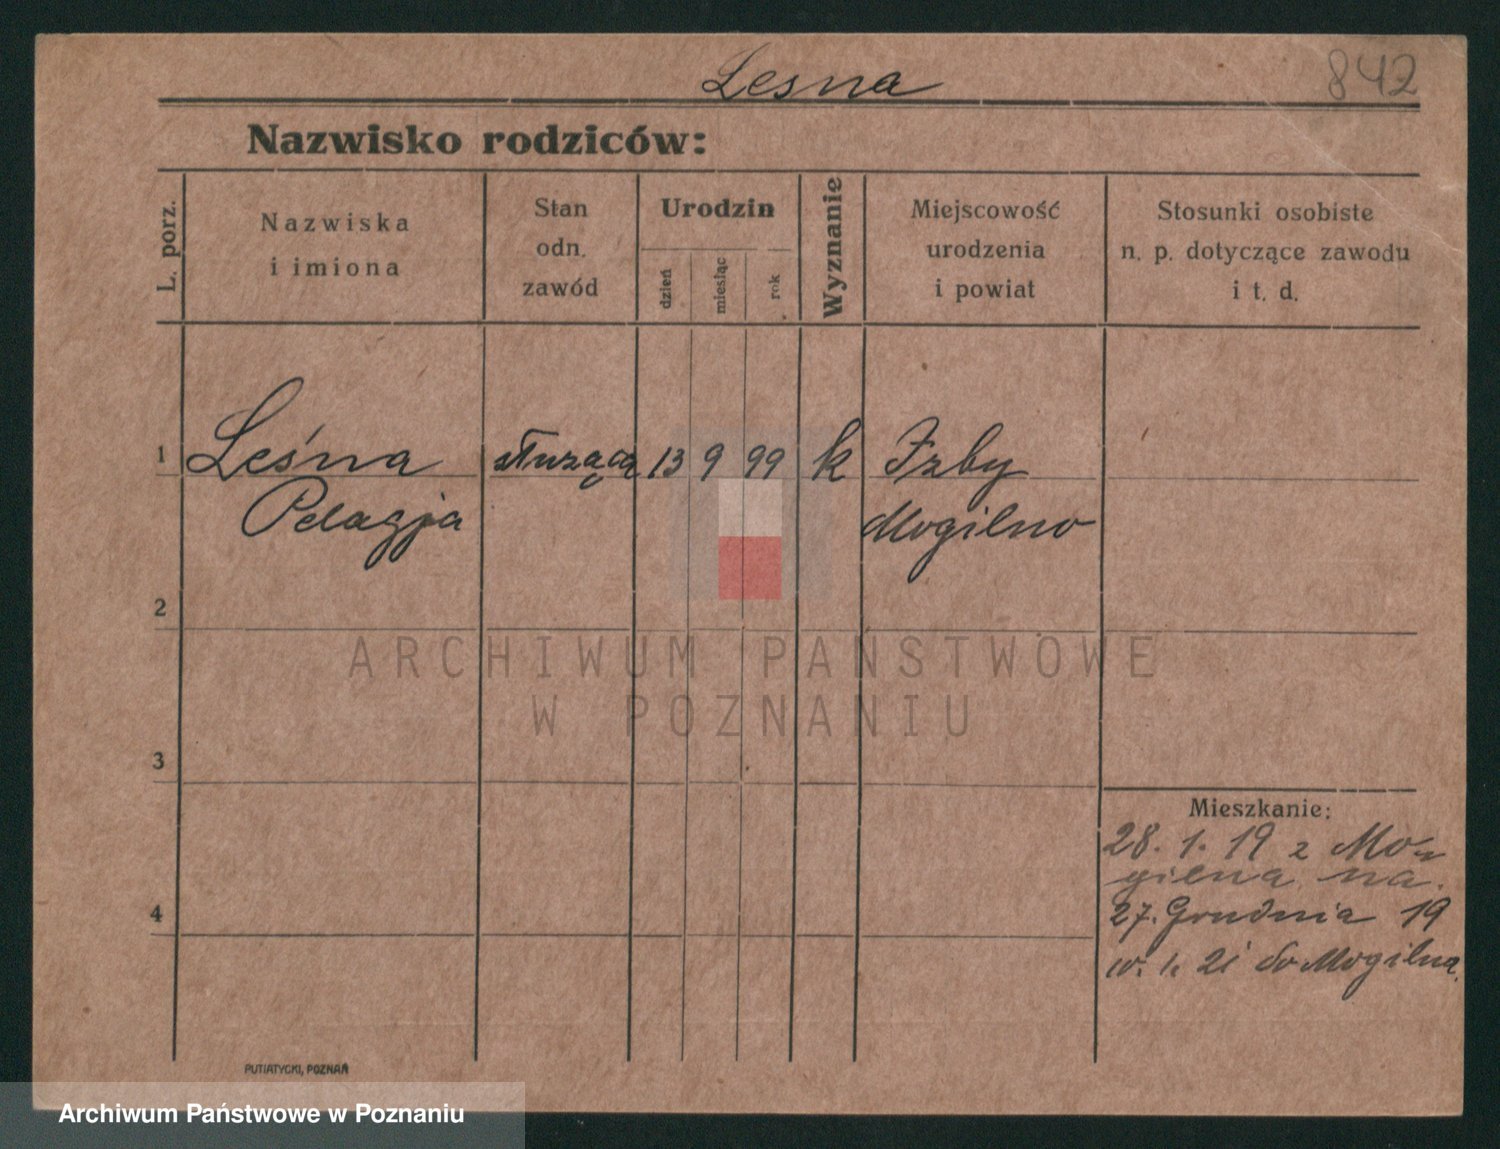 Lesna
842
Nazwisko rodziców:
L. porz.
Nazwiska
i imiona
Stan
odn.
zawód
Urodzin
dzień
miesiąc
rok
Wyznanie
Miejscowość
urodzenia
i powiat
Stosunki osobiste
n. p. dotyczące zawodu
i t. d.
1 Leśna służąca 13 9 99 k Izby
Pelagja Mogilno
2
ARCHIWUM PAŃSTWOWE
W POZNANIU
3
Mieszkanie:
28. 1. 19 z Mo-
gilna na
4
27. Grudnia 19
10. 1. 21 do Mogilna.
PUTIATYCKI, POZNAŃ
Archiwum Państwowe w Poznaniu